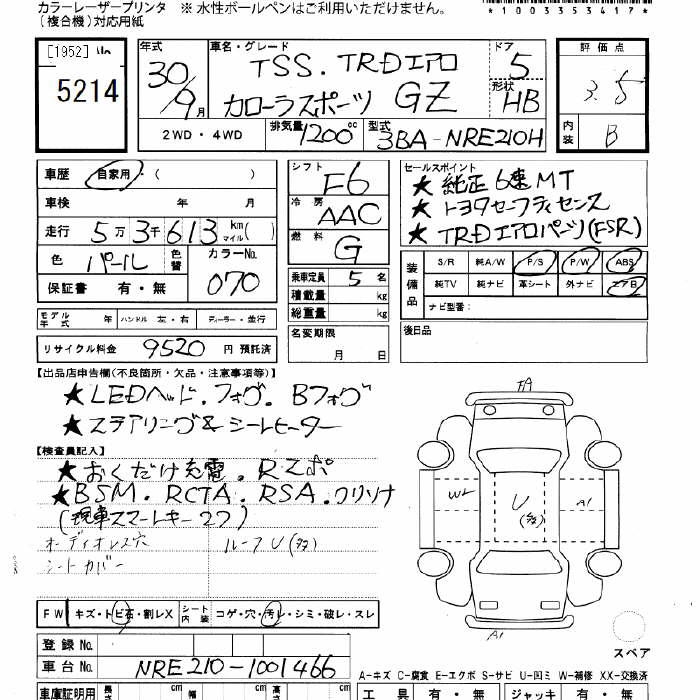 カラーレーザープリンタ ※ 水性ボールペンはご利用いただけません。
(複合機)対応用紙
*1003353417*
[1952]
5214
年式 車名・グレード ドア
30/9月 TSS. TRDエアロ 5
カローラスポーツ GZ 形状 HB
2WD・4WD 排気量 1200cc 型式 3BA-NRE210H
評価点
3.5
内装 B
車歴 自家用・( )
車検 年 月
走行 5万3千613 km マイル( )
色 パール 色替 カラーNo. 070
保証書 有・無
シフト F6
冷房 AAC
燃料 G
乗車定員 5 名
積載量 kg
総重量 kg
名変期限
月 日
セールスポイント
★ 純正6速MT
★ トヨタセーフティセンス
★ TRDエアロパーツ(FSR)
装備品 S/R 純A/W P/S P/W ABS
純TV 純ナビ 革シート 外ナビ エアB
ナビ型番:
後日品
モデル年式 年 ハンドル 左・右 ディーラー・並行
リサイクル料金 9520 円 預託済
【出品店申告欄(不良箇所・欠品・注意事項等)】
★ LEDヘッド.フォグ. Bフォグ
★ ステアリング&シートヒーター
【検査員記入】
★ おくだけ充電. Rスポ
★ BSM. RCTA. RSA. クリソナ
(現車スマートキー2ケ)
オーディオレス穴 ルーフU(多)
シートカバー
FA
W2 U(多) A1
A1
スペア
FW キズ・トビ石・割レX シート内装 コゲ・穴・汚レ・シミ・破レ・スレ
登録No.
車台No. NRE210-1001466
A-キズ C-腐食 E-エクボ S-サビ U-凹ミ W-補修 XX-交換済
車庫証明用 長さ cm 幅 cm 高 cm
工具 有・無 ジャッキ 有・無